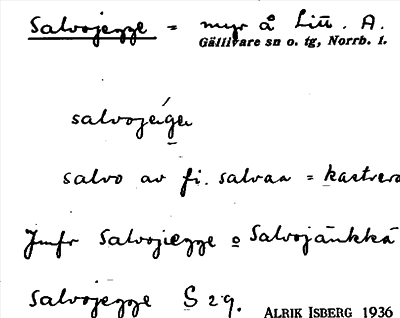 Salvojegge = myr å Lit. A.
Gällivare sn o. tg, Norrb. l.
salvojeige
salvo av fi. salvaa = kastrera
Jmfr Salvojiegge o Salvojänkkä
Salvojegge S 29.
ALRIK ISBERG 1936